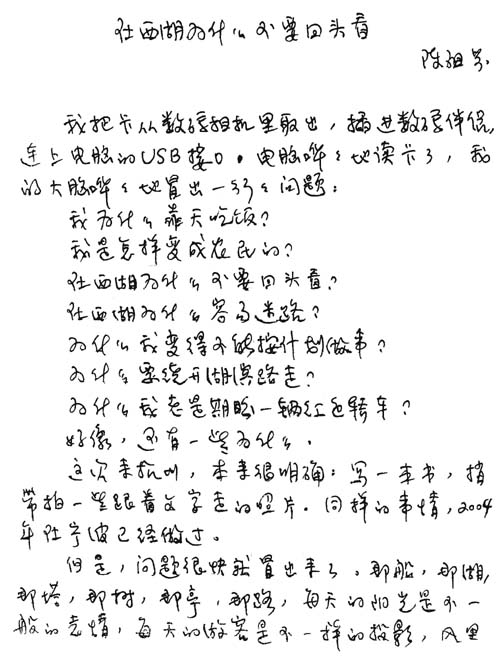 在西湖为什么不要回头看
陈祖芬
我把卡从数码相机里取出，插进数码伴侣，
连上电脑的USB接口。电脑哗哗地读卡了，我
的大脑哗哗地冒出一行行问题：
我为什么靠天吃饭？
我是怎样变成农民的？
在西湖为什么不要回头看？
在西湖为什么容易迷路？
为什么我变得不能按计划做事？
为什么要绕开湖滨路走？
为什么我老是期盼一辆红色轿车？
好像，还有一些为什么。
这次来杭州，本来很明确：写一本书，捎
带拍一些跟着文字走的照片。同样的事情，2004
年在宁波已经做过。
但是，问题很快就冒出来了。那船，那湖，
那塔，那树，那亭，那路，每天的阳光是不一
般的表情，每天的游客是不一样的投影，风里